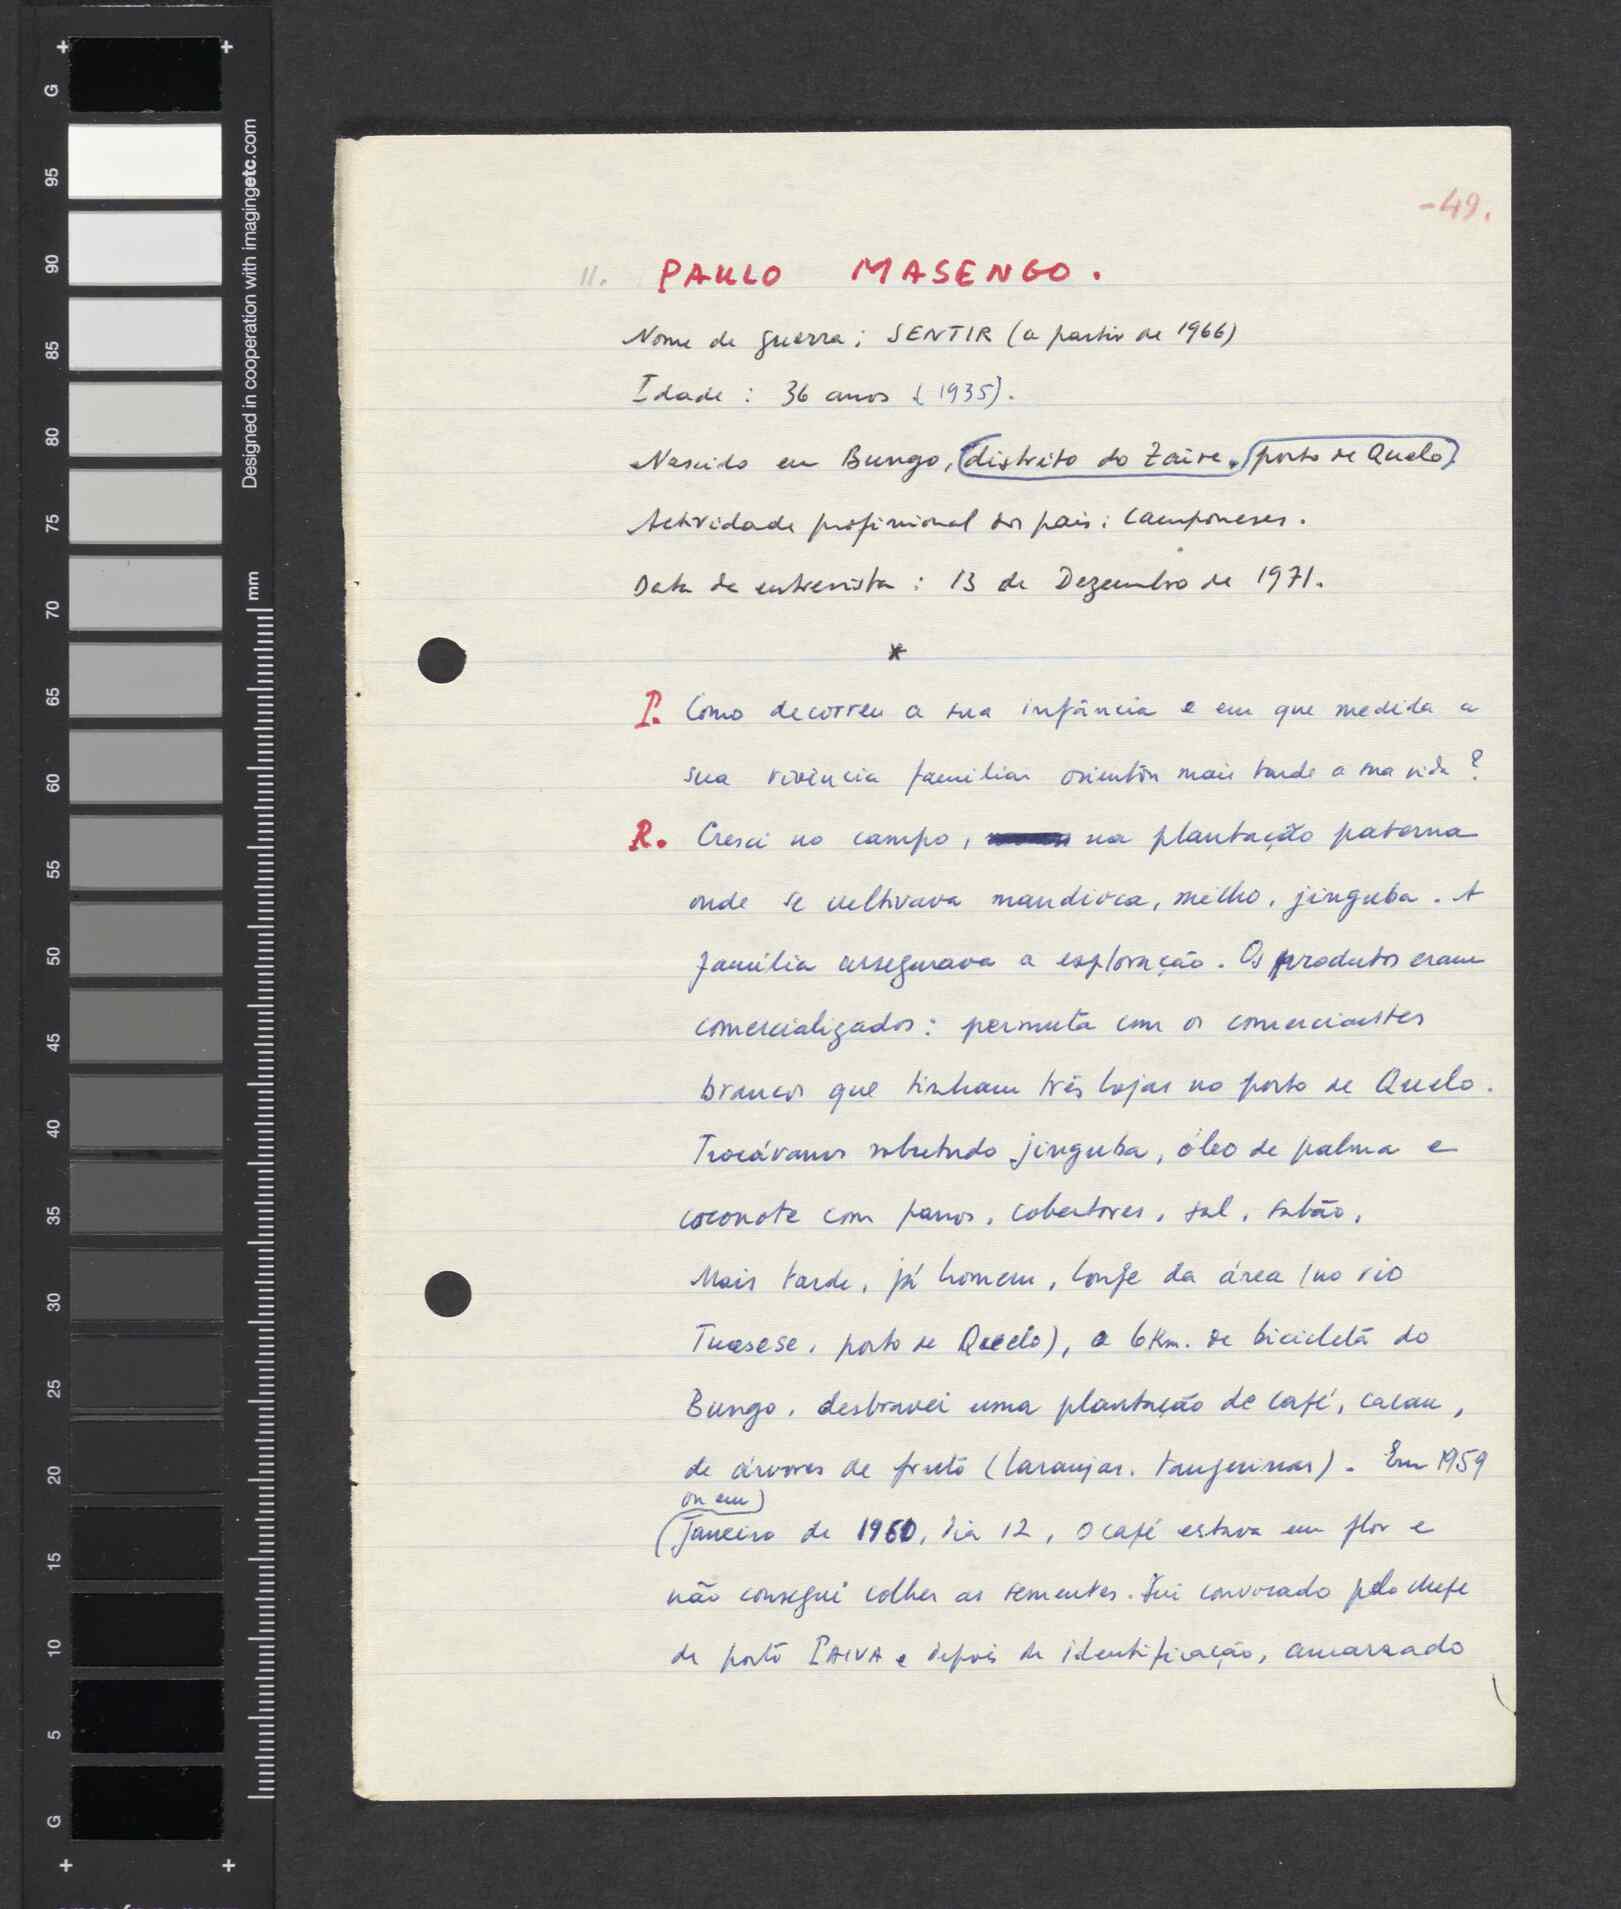 -49.
11. PAULO MASENGO.
Nome de guerra: SENTIR (a partir de 1966)
Idade: 36 anos (1935).
Nascido em Bungo, (distrito do Zaire. (posto de Quelo).
Actividade profissional dos pais: Camponeses.
Data da entrevista: 13 de Dezembro de 1971.
*
P. Como decorreu a sua infância e em que medida a
sua vivência familiar orientou mais tarde a sua vida?
R. Cresci no campo, na plantação paterna
onde se cultivava mandioca, milho, jinguba. A
família assegurava a exploração. Os produtos eram
comercializados: permuta com os comerciantes
brancos que tinham três lojas no posto de Quelo.
Trocávamos sobretudo jinguba, óleo de palma e
coconote com panos, cobertores, sal, sabão.
Mais tarde, já homem, longe da área (no rio
posto de Quelo), a 6 Km. de bicicleta do
Bungo, desbravei uma plantação de café, cacau,
de árvores de fruto (laranjas, tangerinas). Em 1959
ou em)
(Janeiro de 1960, dia 12, o café estava em flor e
não consegui colher as sementes. Fui convocado pelo chefe
de posto PAIVA e depois de identificação, amarrado
G
95
90
85
80
75
70
65
60
55
50
45
40
35
30
25
20
15
10
5
G
mm
Designed in cooperation with imagingetc.com